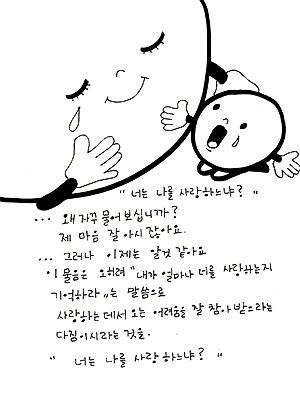 " 너는 나를 사랑하느냐? "
... 왜 자꾸 물어 보십니까?
제 마음 잘 아시잖아요.
... 그러나 이제는 알것 같아요
이 물음은 오히려 "내가 얼마나 너를 사랑하는지
기억하라" 는 말씀으로
사랑하는데서 오는 어려움을 잘 참아 받으라는
다짐이시라는 것을.
" 너는 나를 사랑하느냐? "